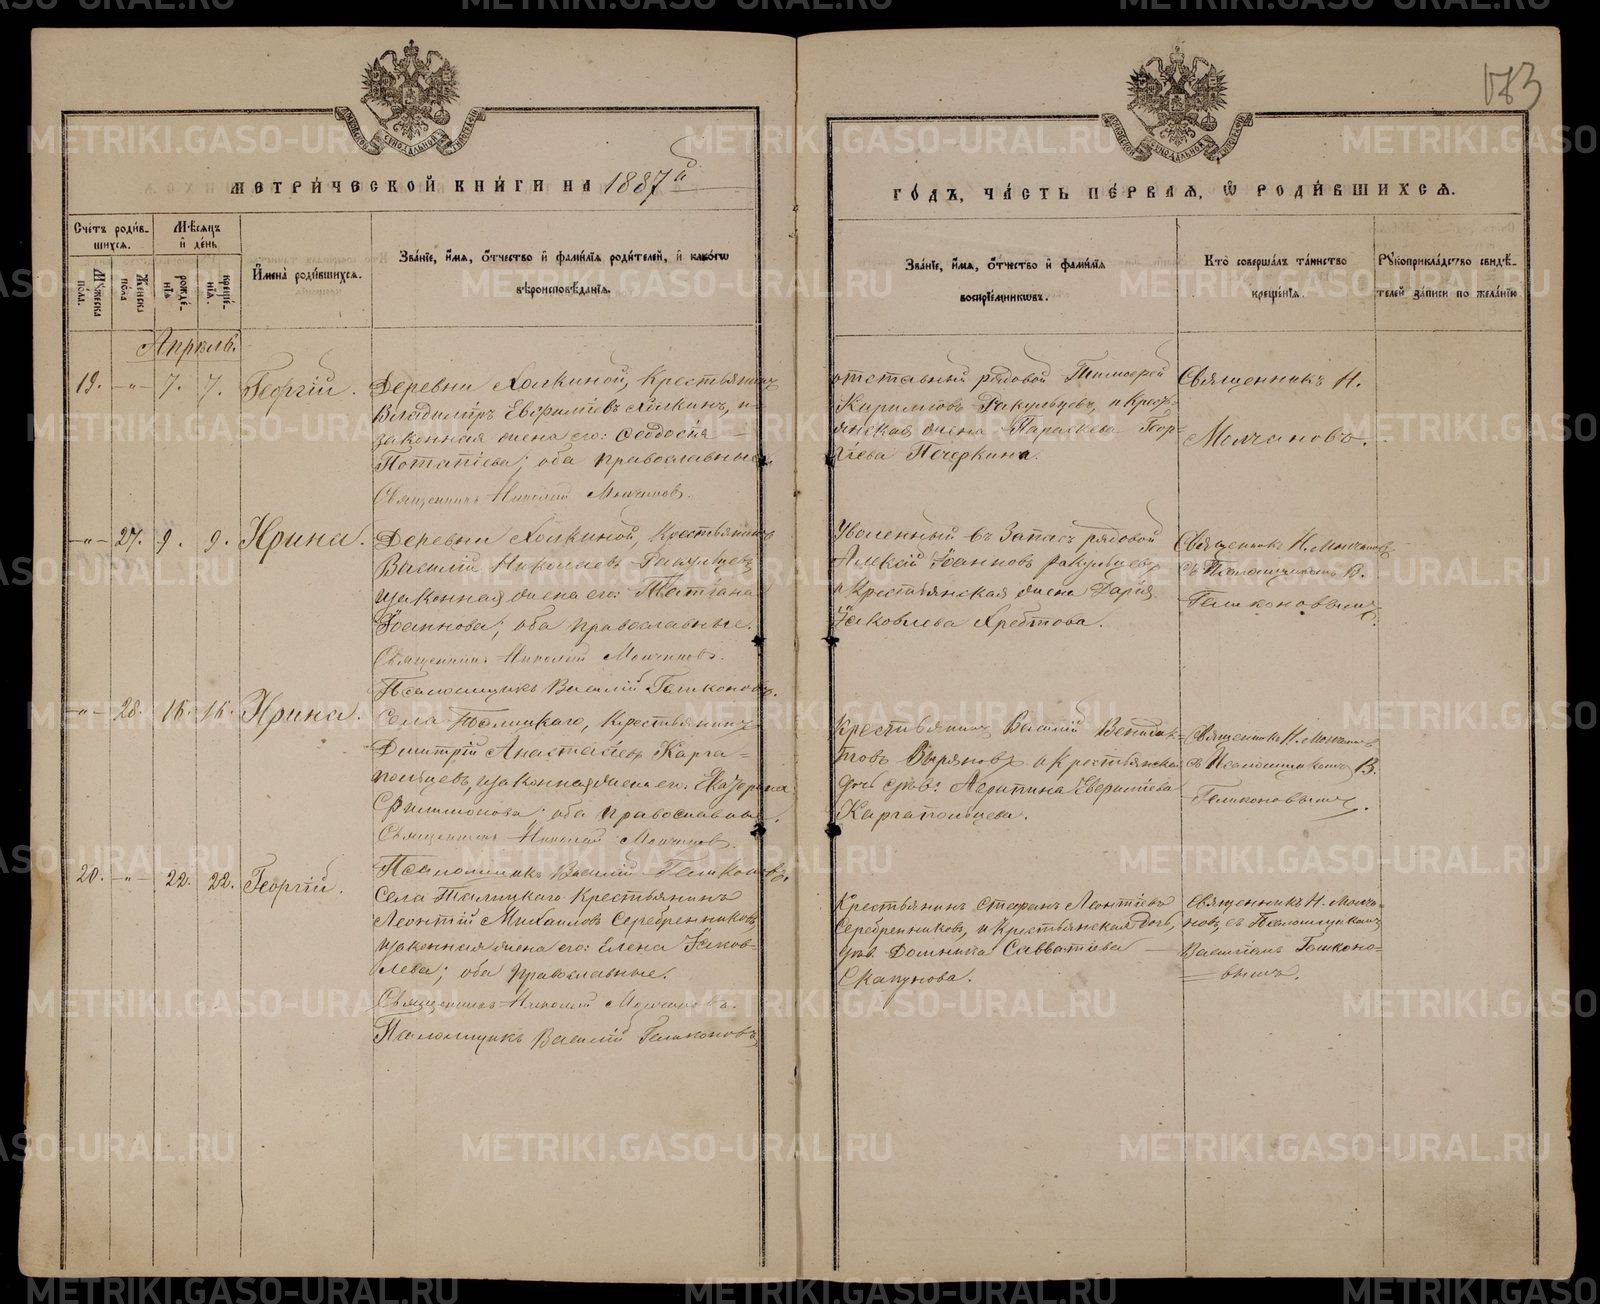 183
МЕТРИ́ЧЕСКОЙ КНИ́ГИ НА 1887й
ГО́ДЪ, ЧА́СТЬ ПЕ́РВАЯ, Ѡ РОДИ́ВШИХСЯ.
Сче́тъ роди́в-
шихся.
Мѣ́сяцъ
и҆ де́нь
Мꙋ́жеска
по́ла.
Же́нска
по́ла
рожде́-
нїѧ
креще́-
нїѧ.
И҆мена̀ роди́вшихся.
Зва́нїе, и҆́мѧ, ѻ҆́тчество и҆ фами́лїѧ роди́телей, и҆ како́гѡ
вѣроисповѣ́данїѧ.
Зва́нїе, и҆́мѧ, ѻ҆́тчество и҆ фами́лїѧ
воспрїе́мникѡвъ.
Кто̀ соверша́лъ та́инство
креще́нїѧ.
Рꙋкоприкла́дство свидѣ́-
телей за́писи по жела́нїю
Апрѣль.
19. -"- 7. 7. Георгій.
Деревни Холкиной, Крестьянинъ
Владиміръ Евфиміевъ Холкинъ, и
законная жена его: Ѳеодосія
Потапіева; оба православные.
Священникъ Николай Молчановъ.
отставный рядовой Тимоѳей
Кириловъ Ракульцевъ, и Крест-
янская жена Параскева Геор-
гіева Печеркина.
Священникъ Н.
Молчановъ.
-"- 27. 9. 9. Ирина.
Деревни Холкиной, Крестьянинъ
Василій Николаевъ Ракульцевъ,
и законная жена его: Татіана
Іоаннова; оба православные.
Священникъ Николай Молчановъ.
Псаломщикъ Василій Гашконовъ.
Уволенный въ Запасъ рядовой
Алексій Іоанновъ Ракульцевъ
и Крестьянская жена Дарія
Іаковлева Хребтова.
Священникъ Н. Молчановъ
съ Псаломщикомъ В.
Гашконовымъ.
-"- 28. 16. 16. Ирина.
Села Талицкаго, Крестьянинъ
Димитрій Анастасіевъ Карга-
польцевъ, и законная жена его: Екатерина
Филимонова; оба православные.
Священникъ Николай Молчановъ.
Псаломщикъ Василій Гашконовъ.
Крестьянинъ Василій Венидик-
товъ Выряновъ и Крестьянская
дочь дѣв: Агрипина Еверитіева
Каргапольцева.
Священникъ Н. Молчановъ
съ Псаломщикомъ В.
Гашконовымъ.
20. -"- 22. 22. Георгій.
Села Талицкаго Крестьянинъ
Леонтій Михаиловъ Серебренниковъ,
и законная жена его: Елена Іаков-
лева; оба православные.
Священникъ Николай Молчановъ.
Псаломщикъ Василій Гашконовъ
Крестьянинъ Стефанъ Леонтіевъ
Серебренниковъ, и Крестьянская дочь,
дѣв. Домника Савватіева
Скапунова.
Священникъ Н. Молча-
новъ, съ Псаломщикомъ
Василіемъ Гашконо-
вымъ.